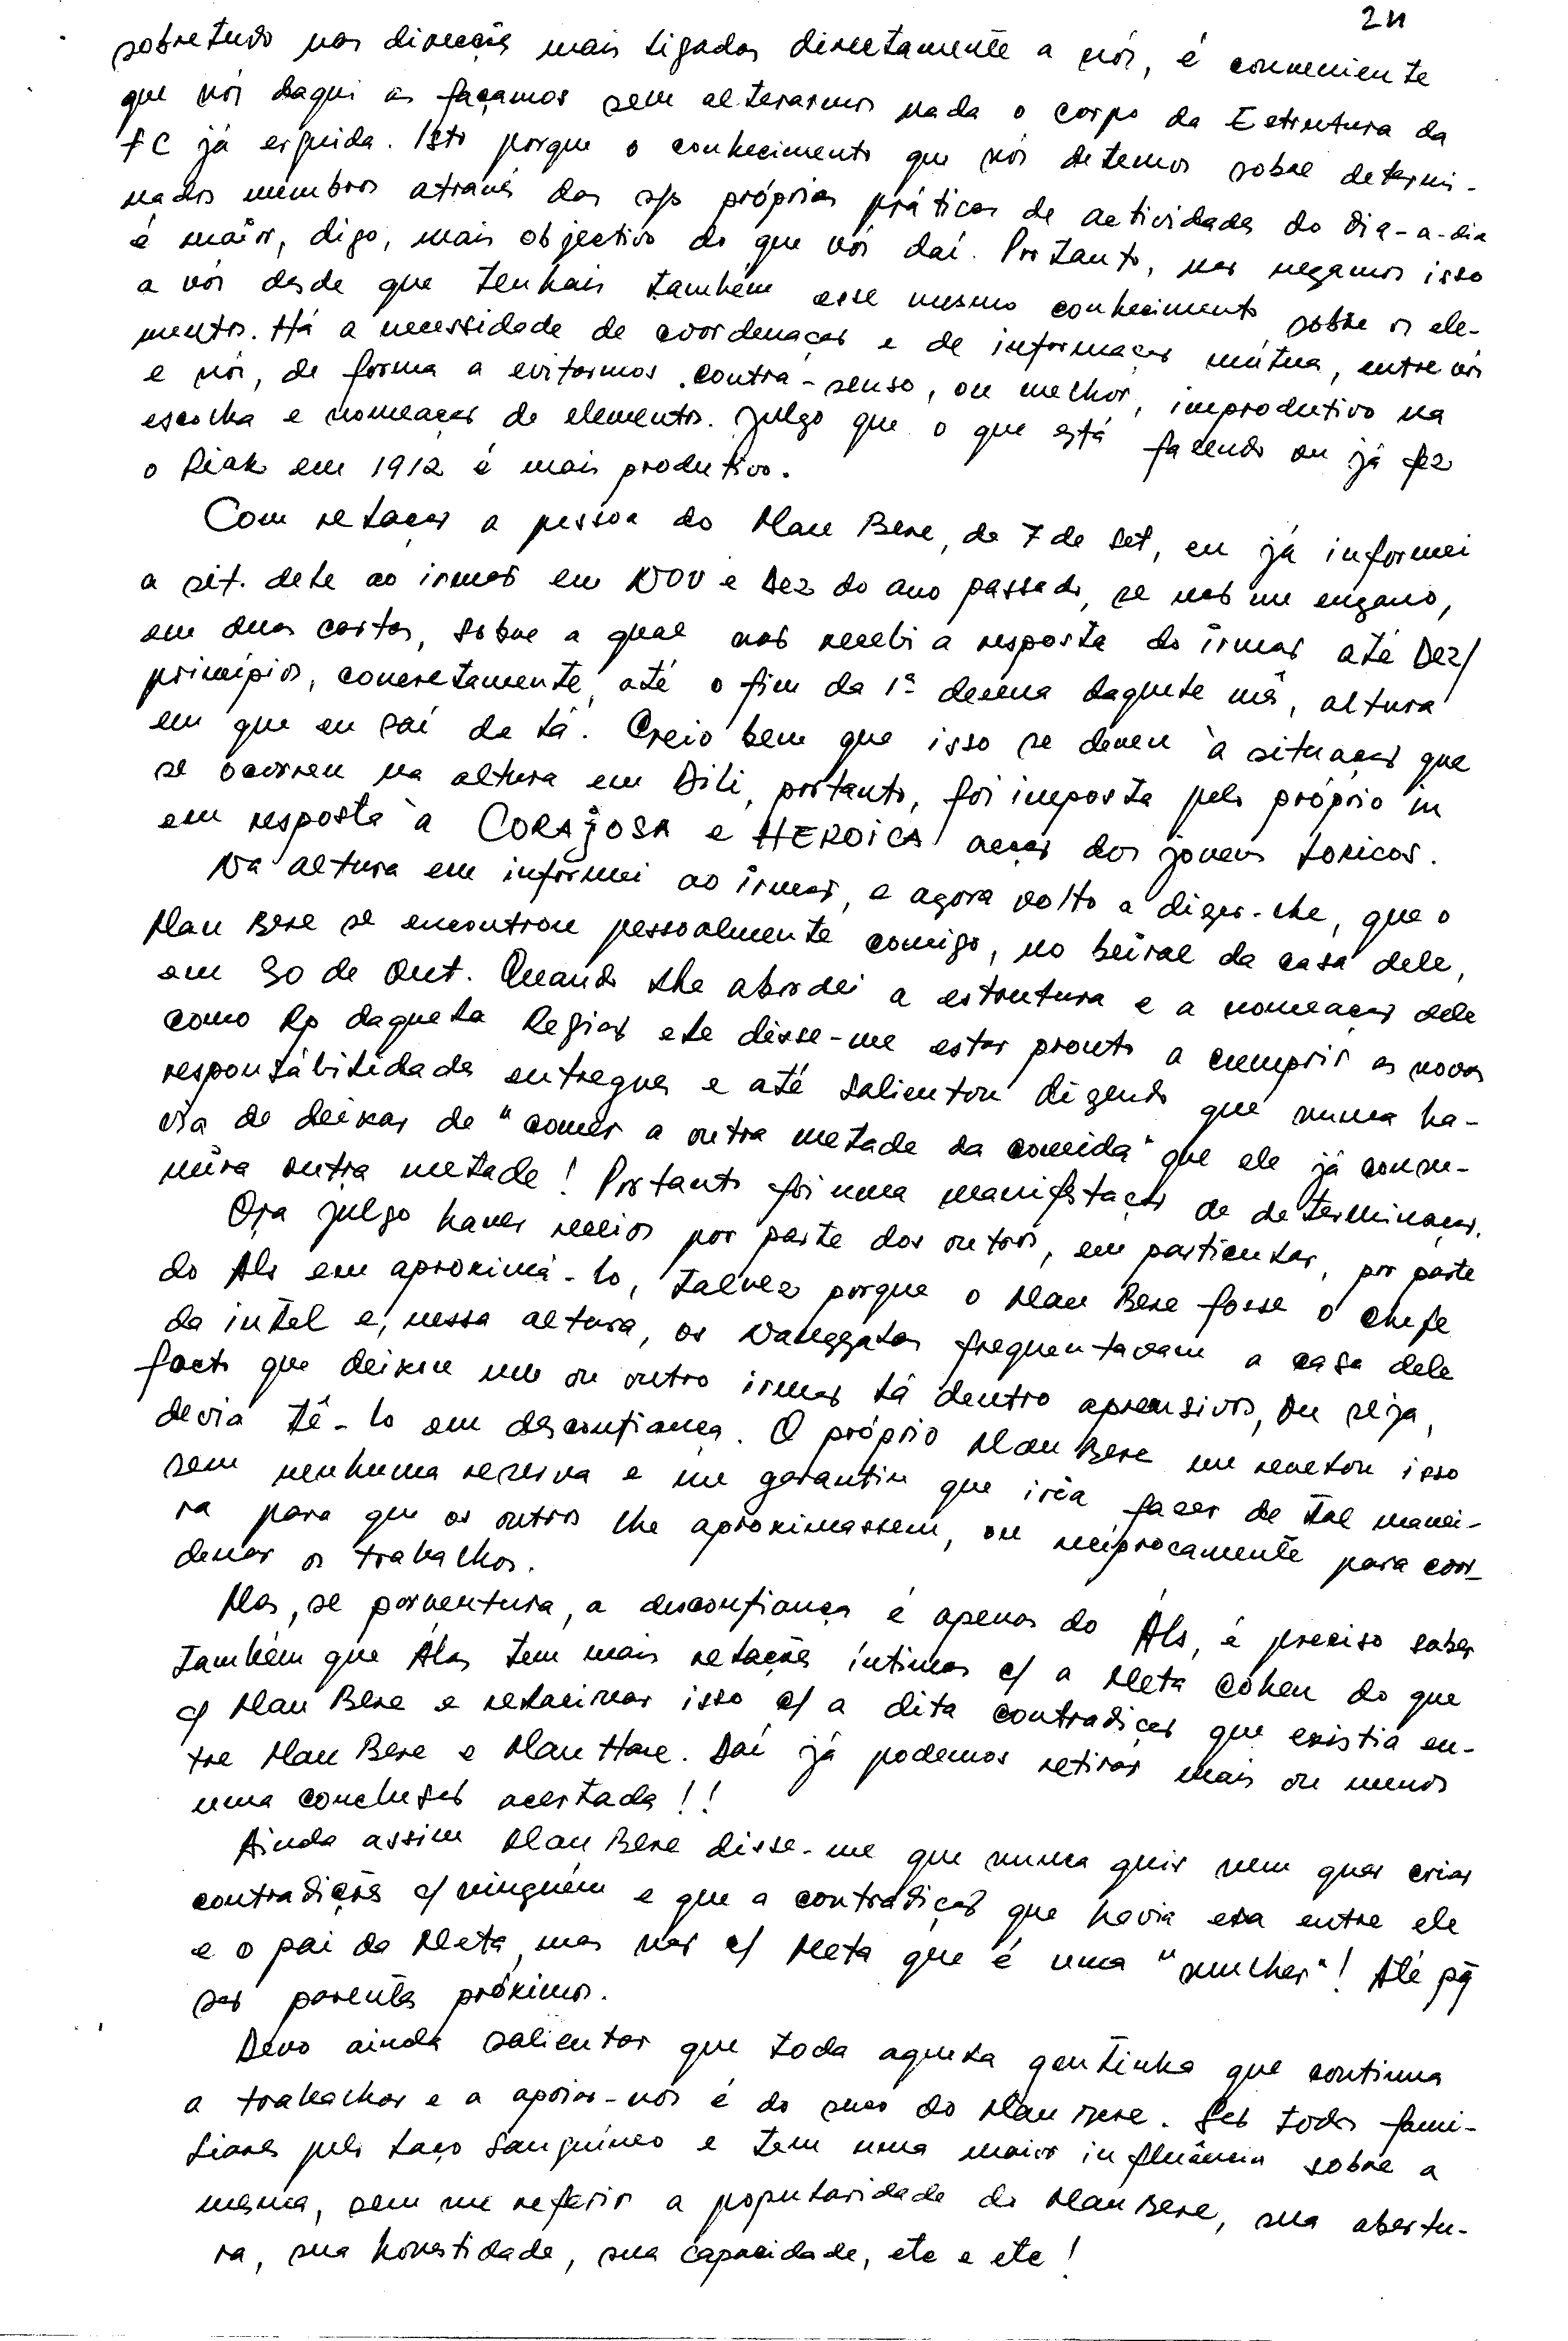 2n
sobretudo nas direcções mais ligadas directamente a nós, é conveniente
que nós daqui as façamos sem alterarmos nada o corpo da Estrutura da
FC já erguida. Isto porque o conhecimento que nós detemos sobre determi-
nados membros através das s/s próprias práticas de actividades do dia-a-dia
é maior, digo, mais objectivo do que vós daí. Portanto, não negamos isso
a vós desde que tenhais também esse mesmo conhecimento sobre os ele-
mentos. Há a necessidade de coordenação e de informação mútua, entre vós
e nós, de forma a evitarmos contra-senso, ou melhor, improdutivo na
escolha e nomeação de elementos. Julgo que o que está fazendo ou já fez
o Riak em 1912 é mais produtivo.
Com relação a pessoa do Mau Bere, de 7 de Set, eu já informei
a sit. dele ao irmão em NOV e Dez do ano passado, se não me engano,
em duas cartas, sobre a qual não recebi a resposta do irmão até Dez/
princípios, concretamente, até o fim da 1ª dezena daquele mês, altura
em que eu saí de lá. Creio bem que isso se deveu à situação que
se ocorreu na altura em Dili, portanto, foi imposta pelo próprio in
em resposta à CORAJOSA e HEROICA acção dos jovens loricos.
Na altura em informei ao irmão, e agora volto a dizer-lhe, que o
Mau Bere se encontrou pessoalmente comigo, no beiral da casa dele,
em 30 de Out. Quando lhe abordei a estrutura e a nomeação dele
como Rp daquela Região ele disse-me estar pronto a cumprir as novas
responsábilidades entregues e até salientou dizendo que nunca ha-
via de deixar de "comer a outra metade da comida" que ele já consu-
mira outra metade! Portanto foi uma manifestação de determinação.
Ora julgo haver receios por parte dos outros, em particular, por parte
do Als em aproximá-lo, talvez porque o Mau Bere fosse o chefe
da intel e, nessa altura, os Nanggalas frequentavam a casa dele
facto que deixou um ou outro irmão lá dentro apreensivos, ou seja,
devia tê-lo em desconfiança. O próprio Mau Bere me revelou isso
sem nenhuma reserva e me garantiu que iria fazer de tal manei-
ra para que os outros lhe aproximassem, ou reciprocamente para coor-
denar os trabalhos.
Mas, se porventura, a desconfiança é apenas do Áls, é preciso saber
também que Álas tem mais relações íntimas c/ a Meta Cohen do que
c/ Mau Bere e relacionar isso c/ a dita contradição que existia en-
tre Mau Bere e Mau Hare. Daí já podemos retirar mais ou menos
uma conclusão acertada!!
Ainda assim Mau Bere disse-me que nunca quis nem quer criar
contradições c/ ninguém e que a contradição que havia era entre ele
e o pai da Meta, mas não c/ Meta que é uma "mulher"! Até pq
são parentes próximos.
Devo ainda salientar que toda aquela gentinha que continua
a trabalhar e a apoiar-nos é do suco do Mau Bere. São todos fami-
liares pelo laço sanguíneo e tem uma maior influência sobre a
mesma, sem me referir a popularidade do Mau Bere, sua abertu-
ra, sua honestidade, sua capacidade, etc e etc!